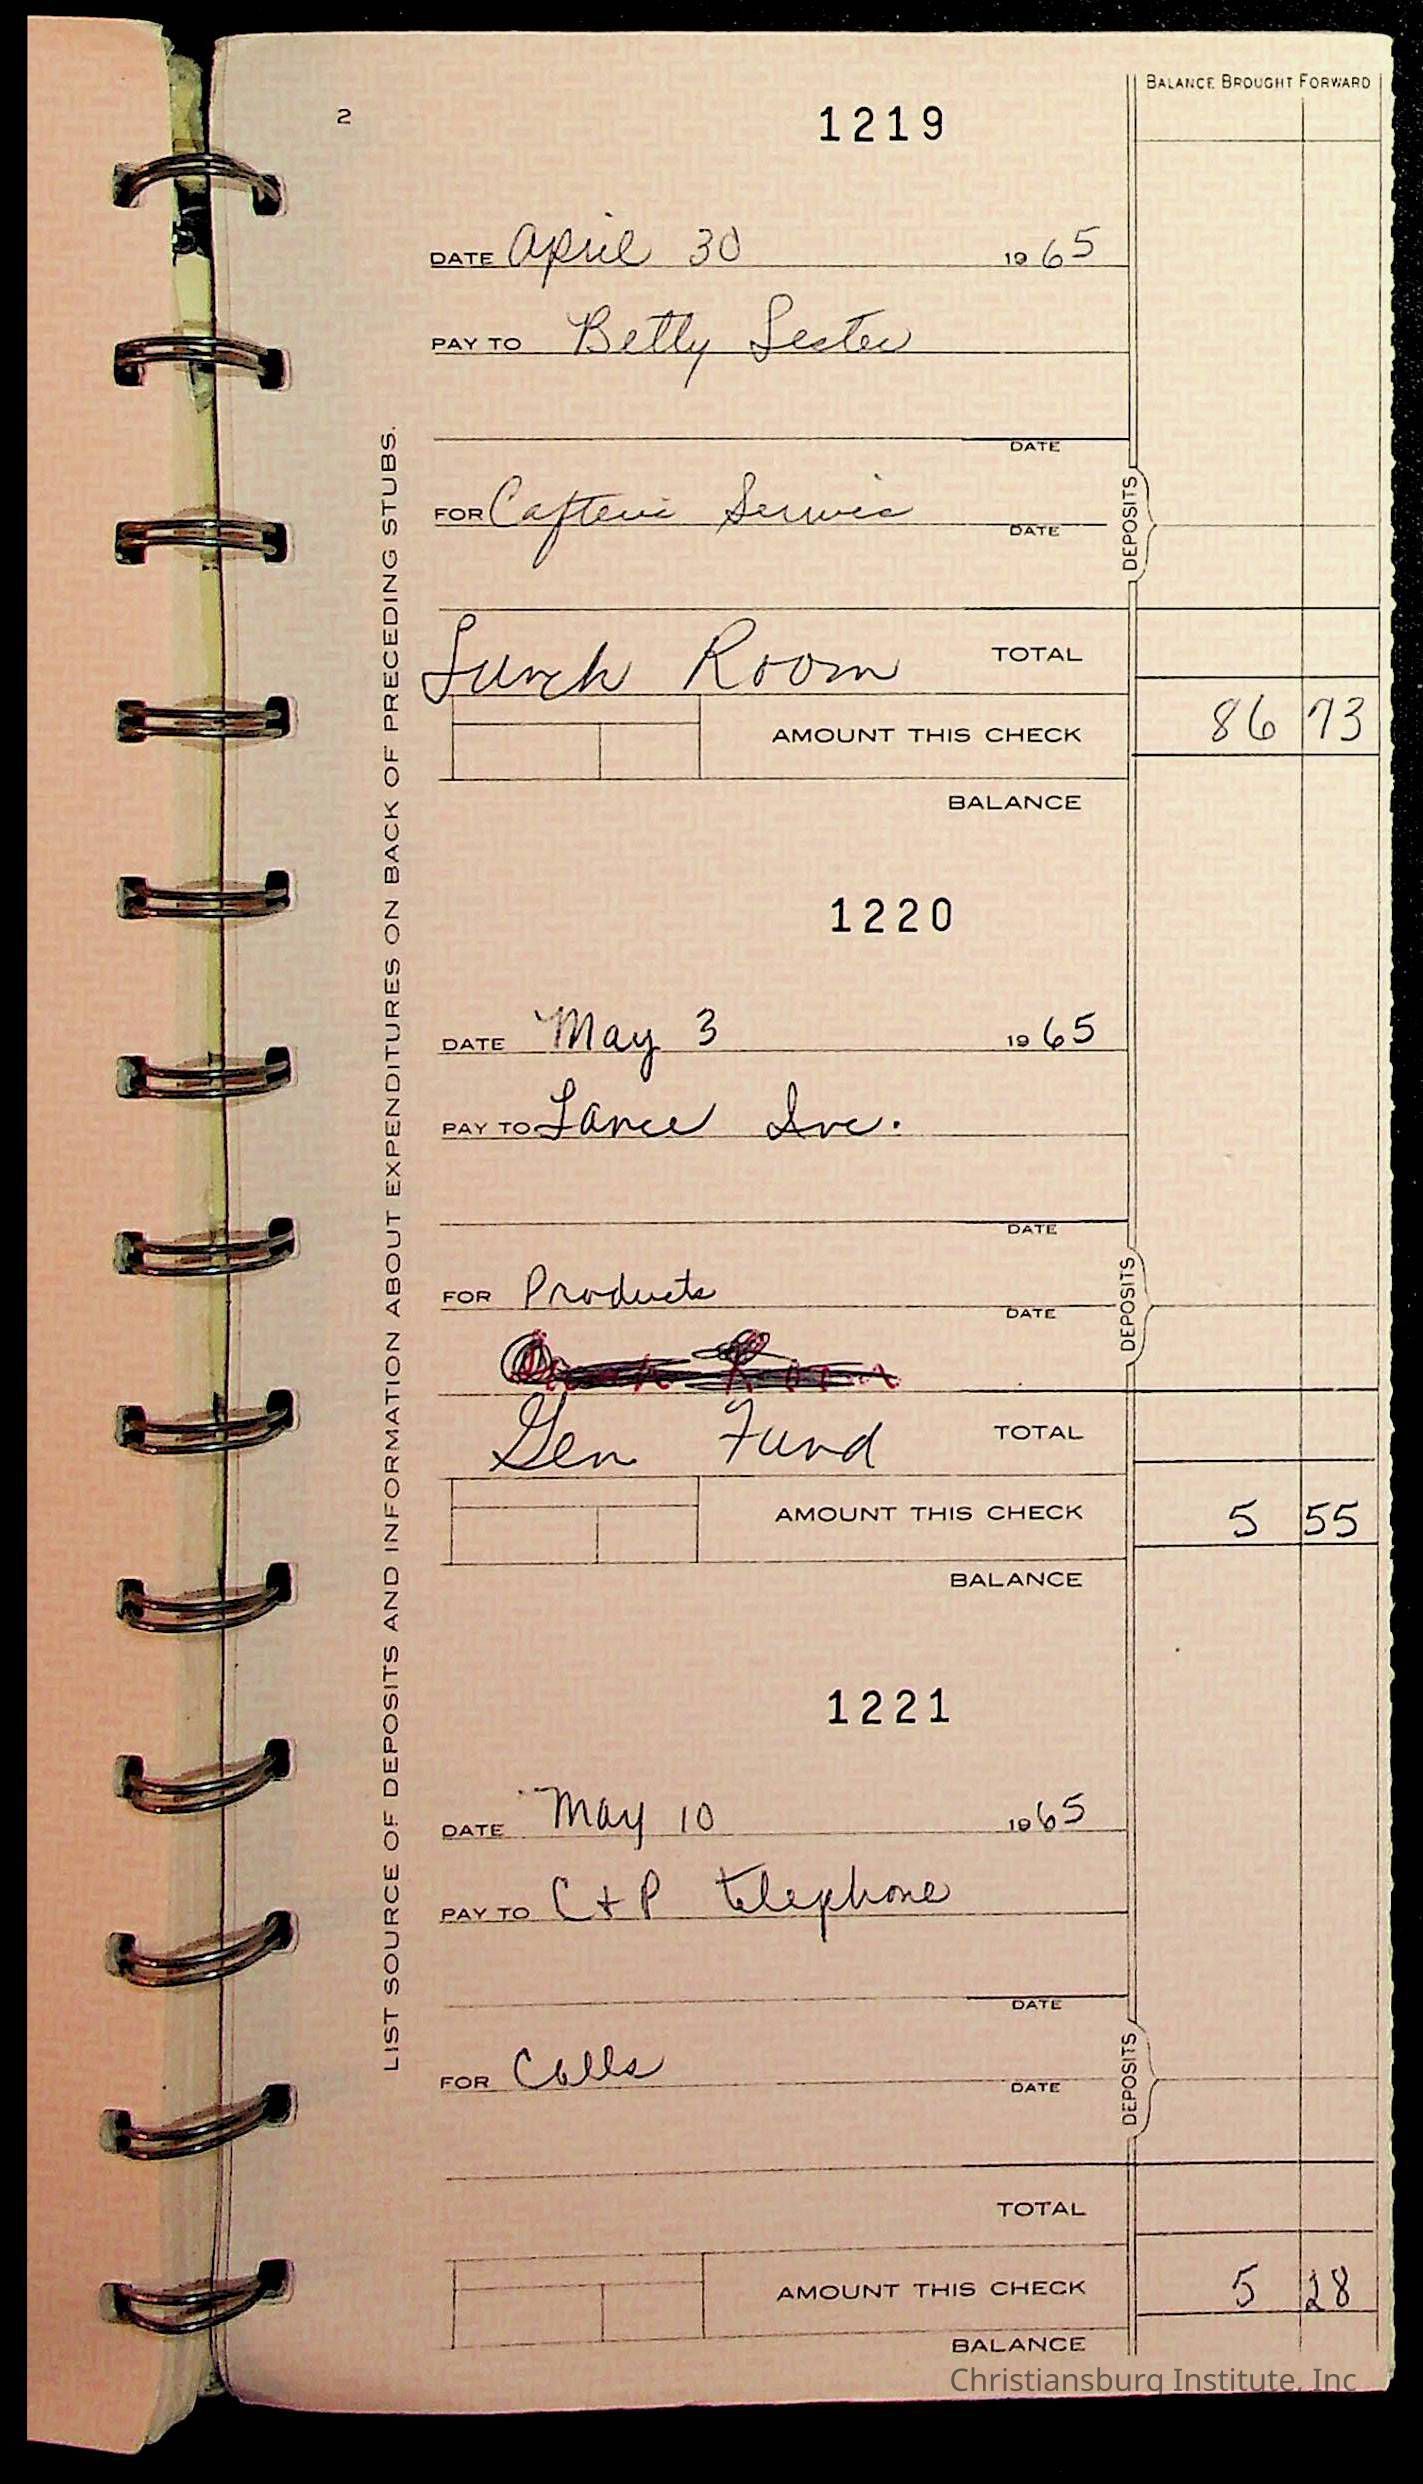 BALANCE BROUGHT FORWARD
2
1219
DATE April 30 1965
PAY TO Betty Lester
DATE
FOR Cafteri Servic
DATE
DEPOSITS
Lunch Room TOTAL
AMOUNT THIS CHECK 86 73
BALANCE
1220
DATE May 3 1965
PAY TO Lance Inc.
DATE
FOR Products
DATE
DEPOSITS
Gen Fund TOTAL
AMOUNT THIS CHECK 5 55
BALANCE
1221
DATE May 10 1965
PAY TO C + P telephone
DATE
FOR Calls
DATE
DEPOSITS
TOTAL
AMOUNT THIS CHECK 5 28
BALANCE
LIST SOURCE OF DEPOSITS AND INFORMATION ABOUT EXPENDITURES ON BACK OF PRECEDING STUBS.
Christiansburg Institute, Inc